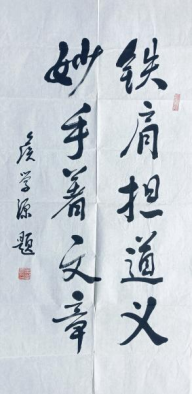 铁肩担道义
妙手著文章
侯学源题